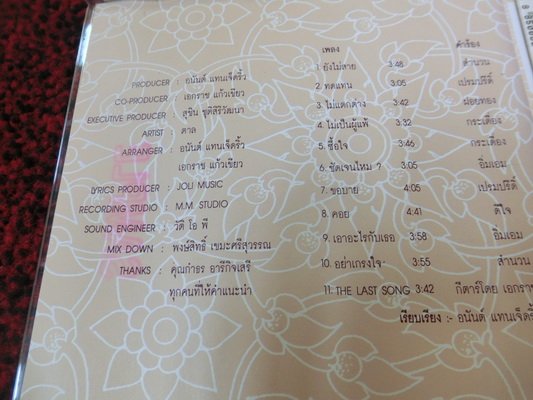 PRODUCER : อนันต์ แทนเจ็ดริ้ว
CO-PRODUCER : เอกราช แก้วเขียว
EXECUTIVE PRODUCER : สุชิน ชุติสิริวัฒนา
ARTIST : ตาล
ARRANGER : อนันต์ แทนเจ็ดริ้ว
เอกราช แก้วเขียว
LYRICS PRODUCER : JOLI MUSIC
RECORDING STUDIO : M.M. STUDIO
SOUND ENGINEER : วิติ โอ พี
MIX DOWN : พงษ์สิทธิ์ เขมะศรีสุวรรณ
THANKS : คุณกำธร อารีกิจเสรี
ทุกคนที่ให้คำแนะนำ
เพลง คำร้อง
1. ยังไม่สาย 3:48 สำนวน
2. ทดแทน 3:05 เปรมปรีดิ์
3. ไม่แตกต่าง 3:42 ฝอยทอง
4. ไม่เป็นผู้แพ้ 3:32 กระเตื้อง
5. ซื้อใจ 3:46 กระเตื้อง
6. ชัดเจนไหม ? 3:05 อิ่มเอม
7. ขอบาย 4:05 เปรมปรีดิ์
8. คอย 4:41 ดีใจ
9. เอาอะไรกับเธอ 3:58 อิ่มเอม
10. อย่าเกรงใจ 3:55 สำนวน
11. THE LAST SONG 3:42 กีตาร์โดย เอกราช
เรียบเรียง :- อนันต์ แทนเจ็ดริ้ว